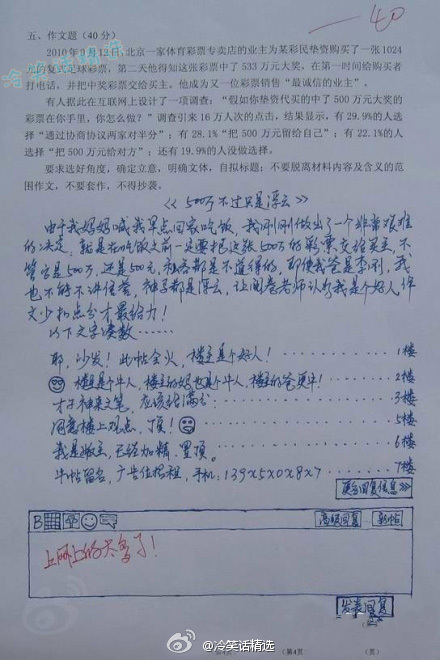 -40
五、作文题（40 分）
2010年9月12日，北京一家体育彩票专卖店的业主为某彩民垫资购买了一张1024
元的复式足球彩票，第二天他得知这张彩票中了 533 万元大奖，在第一时间给购买者
打电话，并把中奖彩票交给买主。他成为又一位彩票销售“最诚信的业主”。
有人据此在互联网上设计了一项调查：“假如你垫资代买的中了 500 万元大奖的
彩票在你手里，你怎么做？”调查引来 16 万人次的点击，结果显示，有 29.9%的人选
择“通过协商协议两家对半分”；有 28.1%“把 500 万元留给自己”；有 22.1%的人
选择“把 500 万元给对方”；还有 19.9%的人没做选择。
要求选好角度，确定立意，明确文体，自拟标题；不要脱离材料内容及含义的范
围作文，不要套作，不得抄袭。
《500万不过只是浮云》
由于我妈妈喊我早点回家吃饭，我刚刚做出了一个非常艰难
的决定，就是在吃饭之前一定要把这张500万的彩票交给买主，不
管它是500万，还是500元，私吞都是不道德的，即使我爸是李刚，我
也不能不讲信誉，神马都是浮云，让阅卷老师认为我是个好人，作
文少扣点分才最给力！
以下文字凑数……
耶，沙发！此帖会火，楼主是个好人！ 1楼
楼主是个牛人，楼主的妈也是个牛人，楼主的爸更牛！ 2楼
才子神来之笔，应该给满分 3楼
同意楼上观点，顶！ 5楼
我是版主，已经加精，置顶。 6楼
牛帖留名，广告位招租，手机：139x5x0x8x7 7楼
更多回复信息>>
B
高级回复 新帖
上网上的太多了！
发表回复
（第4页）
（页）
@冷笑话精选